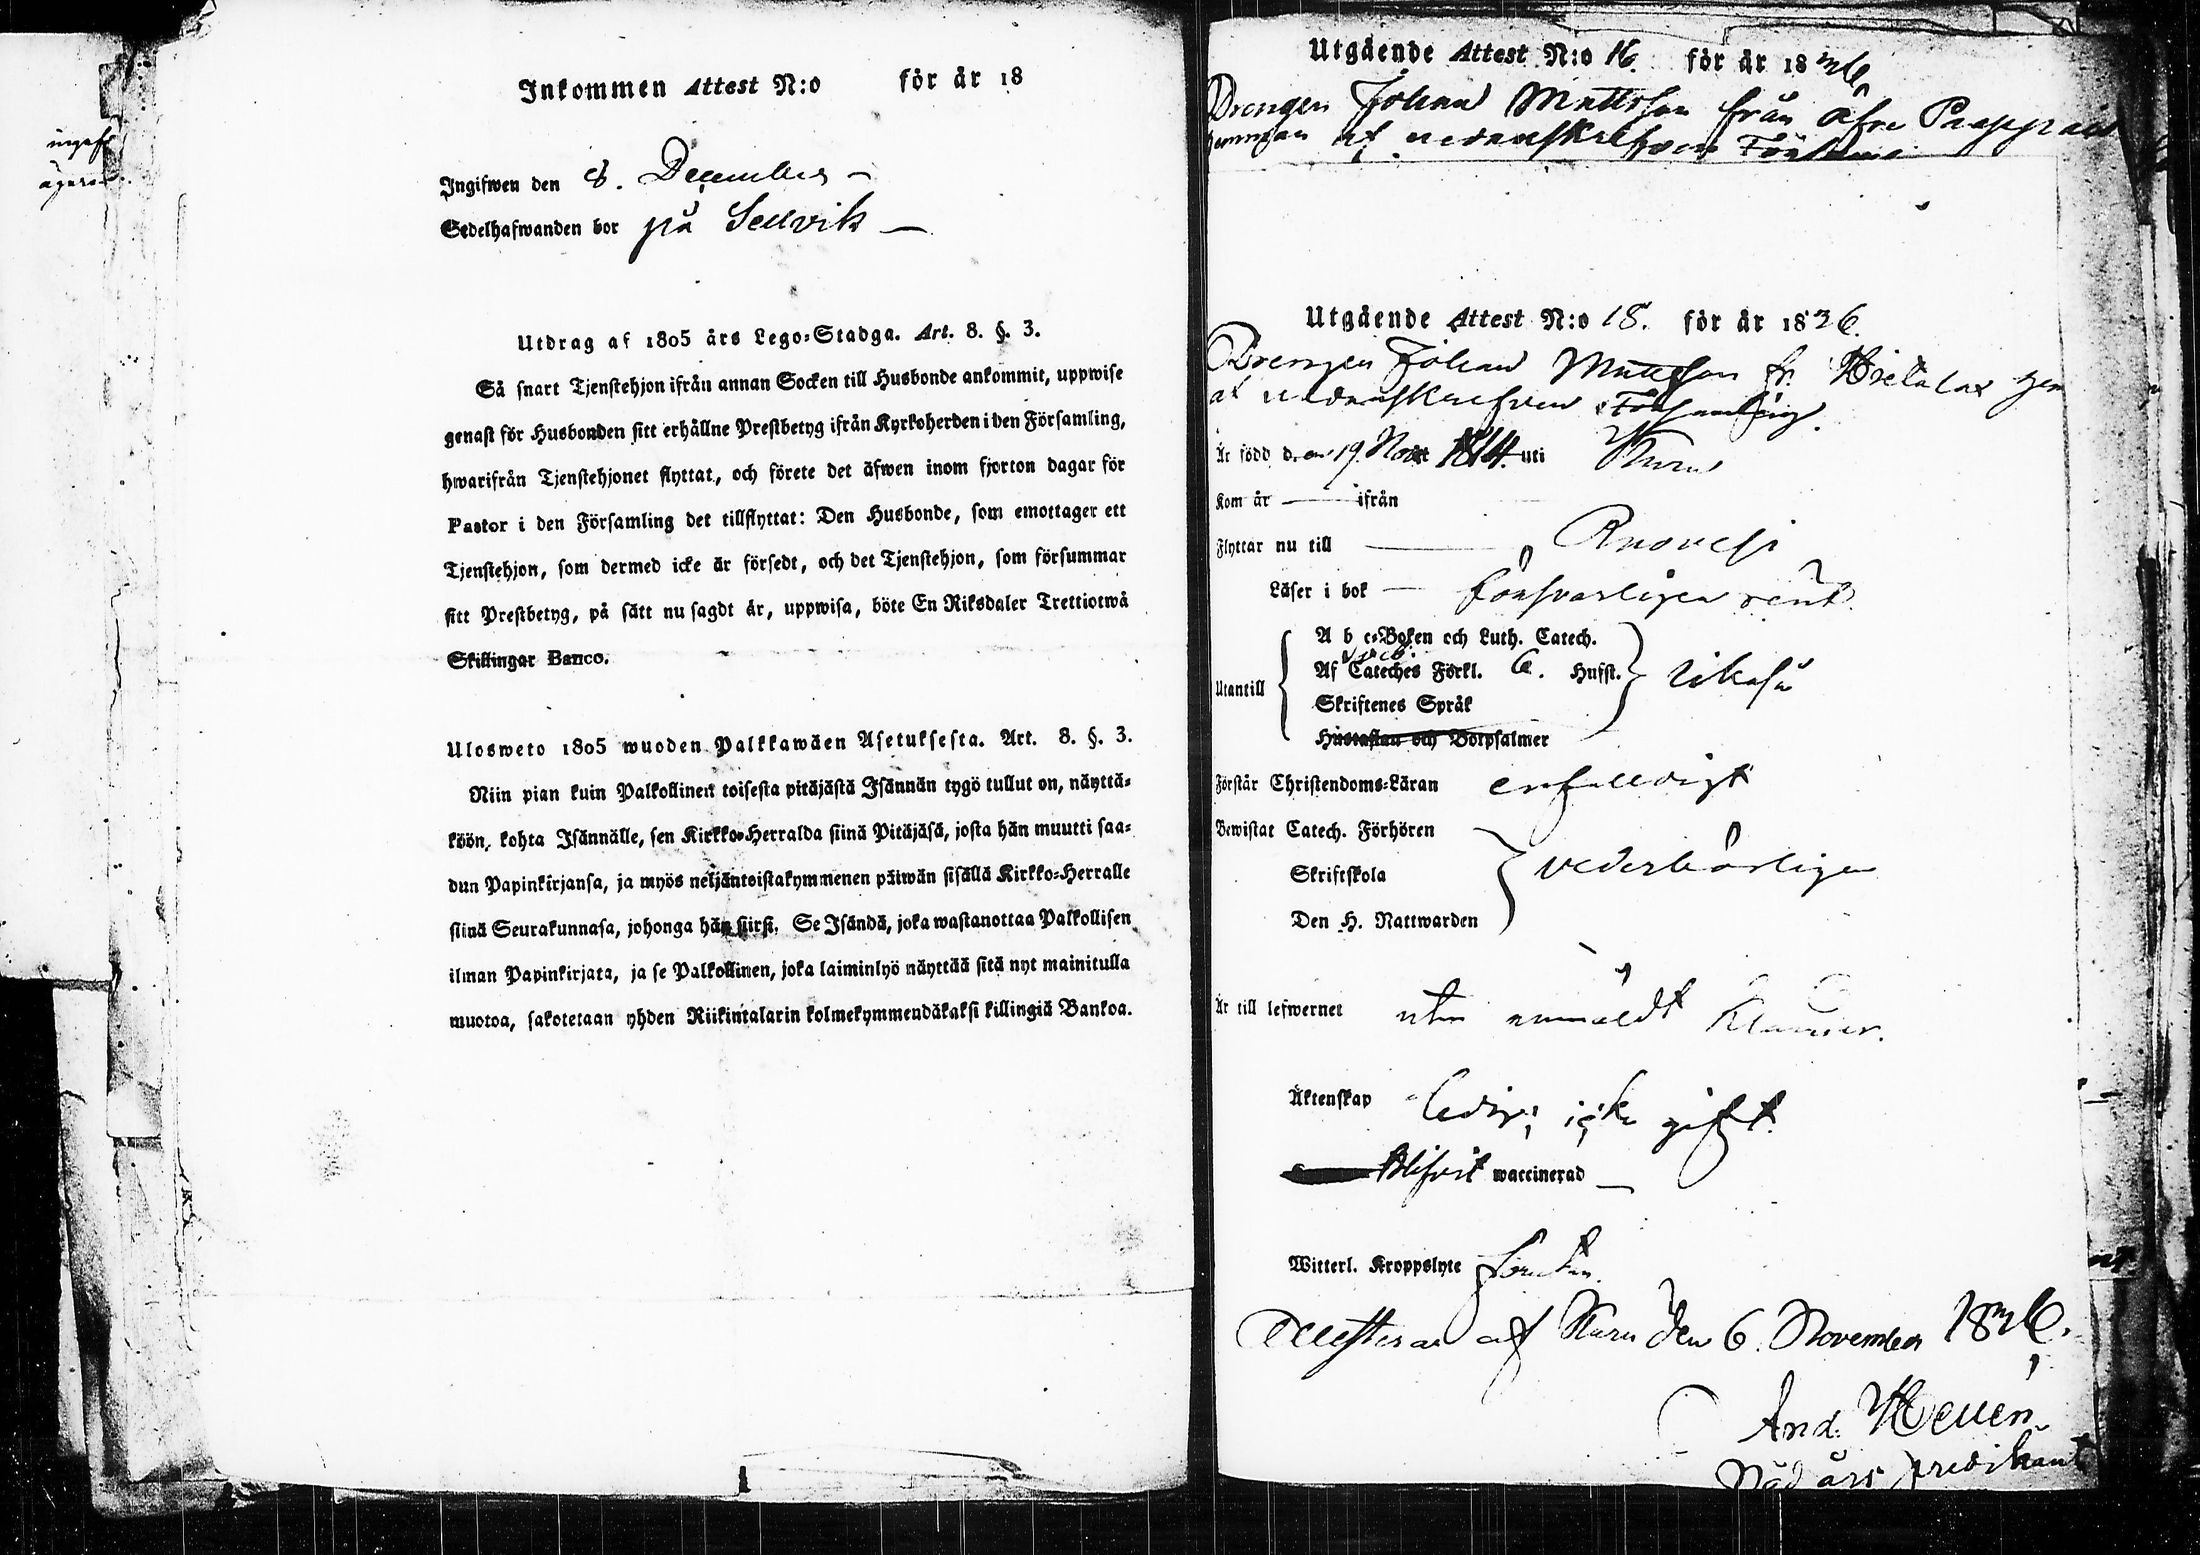 ingif
ägare
Inkommen Attest N:o för år 18
Ingifwen den 8. December
Sedelhafwanden bor på Sellvik
Utdrag af 1805 års Lego-Stadga. Art. 8. §. 3.
Så snart Tjenstehjon ifrån annan Socken till Husbonde ankommit, uppwise
genast för Husbonden sitt erhållne Prestbetyg ifrån Kyrkoherden i den Församling,
hwarifrån Tjenstehjonet flyttat, och förete det äfwen inom fjorton dagar för
Pastor i den Församling det tillflyttat: Den Husbonde, som emottager ett
Tjenstehjon, som dermed icke är försedt, och det Tjenstehjon, som försummar
sitt Prestbetyg, på sätt nu sagdt är, uppwisa, böte En Riksdaler Trettiotwå
Skillingar Banco.
Ulosweto 1805 wuoden Palkkawäen Asetuksesta. Art. 8. §. 3.
Niin pian kuin Palkollinen toisesta pitäjästä Isännän tygö tullut on, näyttä-
köön, kohta Isännälle, sen Kirkko-Herralda siinä Pitäjäsä, josta hän muutti saa-
dun Papinkirjansa, ja myös neljäntoistakymmenen päiwän sisällä Kirkko-Herralle
siinä Seurakunnasa, johonga hän siirsi. Se Isändä, joka wastanottaa Palkollisen
ilman Papinkirjata, ja se Palkollinen, joka laiminlyö näyttää sitä nyt mainitulla
muotoa, sakotetaan yhden Riikintalarin kolmekymmendäkaksi killingiä Bankoa.
Utgående Attest N:o 16. för år 1836
Drengen Johan Mattsson från Öfre
af nedanskrefven
Utgående Attest N:o 18. för år 1836.
Drengen Johan Mattsson fr. Hietalax
af nedanskrefven Församling.
Är född den 19. Nov. 1814. uti Kuru
Kom år — ifrån
Flyttar nu till — Ruovesi
Läser i bok — försvarligen rent.
A b c-Boken och Luth. Catech.
Af Cateches Förkl. 6. Hufst.
Utantill
Skriftenes Språk
Hustaflan och Botpsalmer
likaså
Förstår Christendoms-Läran enfalldigt
Bewistat Catech. Förhören
Skriftskola
Den H. Nattwarden
vederbörligen
Är till lefwernet utan anmäldt klander.
Äktenskap ledig; icke gift.
Blifvit waccinerad
Witterl. Kroppslyte
Attesterar af Kuru den 6. November 1836.
And.
Nådårs predikant